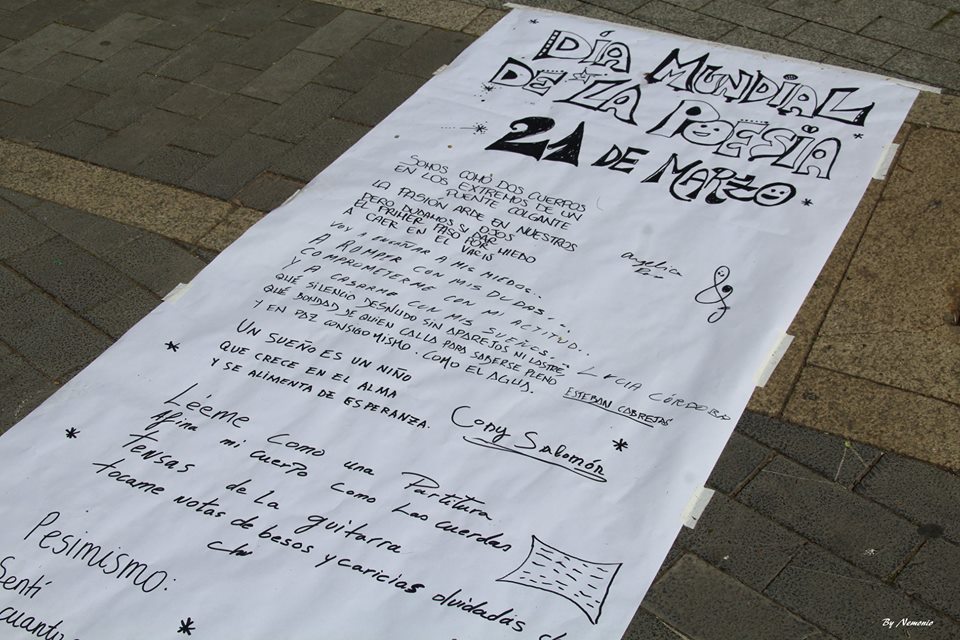 DÍA MUNDIAL
DE LA POESÍA
21 DE MARZO
SOMOS COMO DOS CUERPOS
EN LOS EXTREMOS DE UN
PUENTE COLGANTE
LA PASIÓN ARDE EN NUESTROS
OJOS
PERO DUDAMOS SI DAR
EL PRIMER PASO POR MIEDO
A CAER EN EL VACIO
Angelica
VOY A ENGAÑAR A MIS MIEDOS..
A ROMPER CON MIS DUDAS...
COMPROMETERME CON MI ACTITUD..
Y A CASARME CON MIS SUEÑOS...
LUCIA CÓRDOBA
QUÉ SILENCIO DESNUDO SIN APAREJOS NI LASTRE
QUÉ BONDAD DE QUIEN CALLA PARA SABERSE PLENO
Y EN PAZ CONSIGO MISMO. COMO EL AGUA.
ESTEBAN CABREJAS
UN SUEÑO ES UN NIÑO
QUE CRECE EN EL ALMA
Y SE ALIMENTA DE ESPERANZA.
Cony Salomón
Léeme como una Partitura
Afina mi cuerpo como Las cuerdas
Tensas de La guitarra
tocame notas de besos y caricias olvidadas
Pesimismo:
Sentí
cuanto
By Nemonio